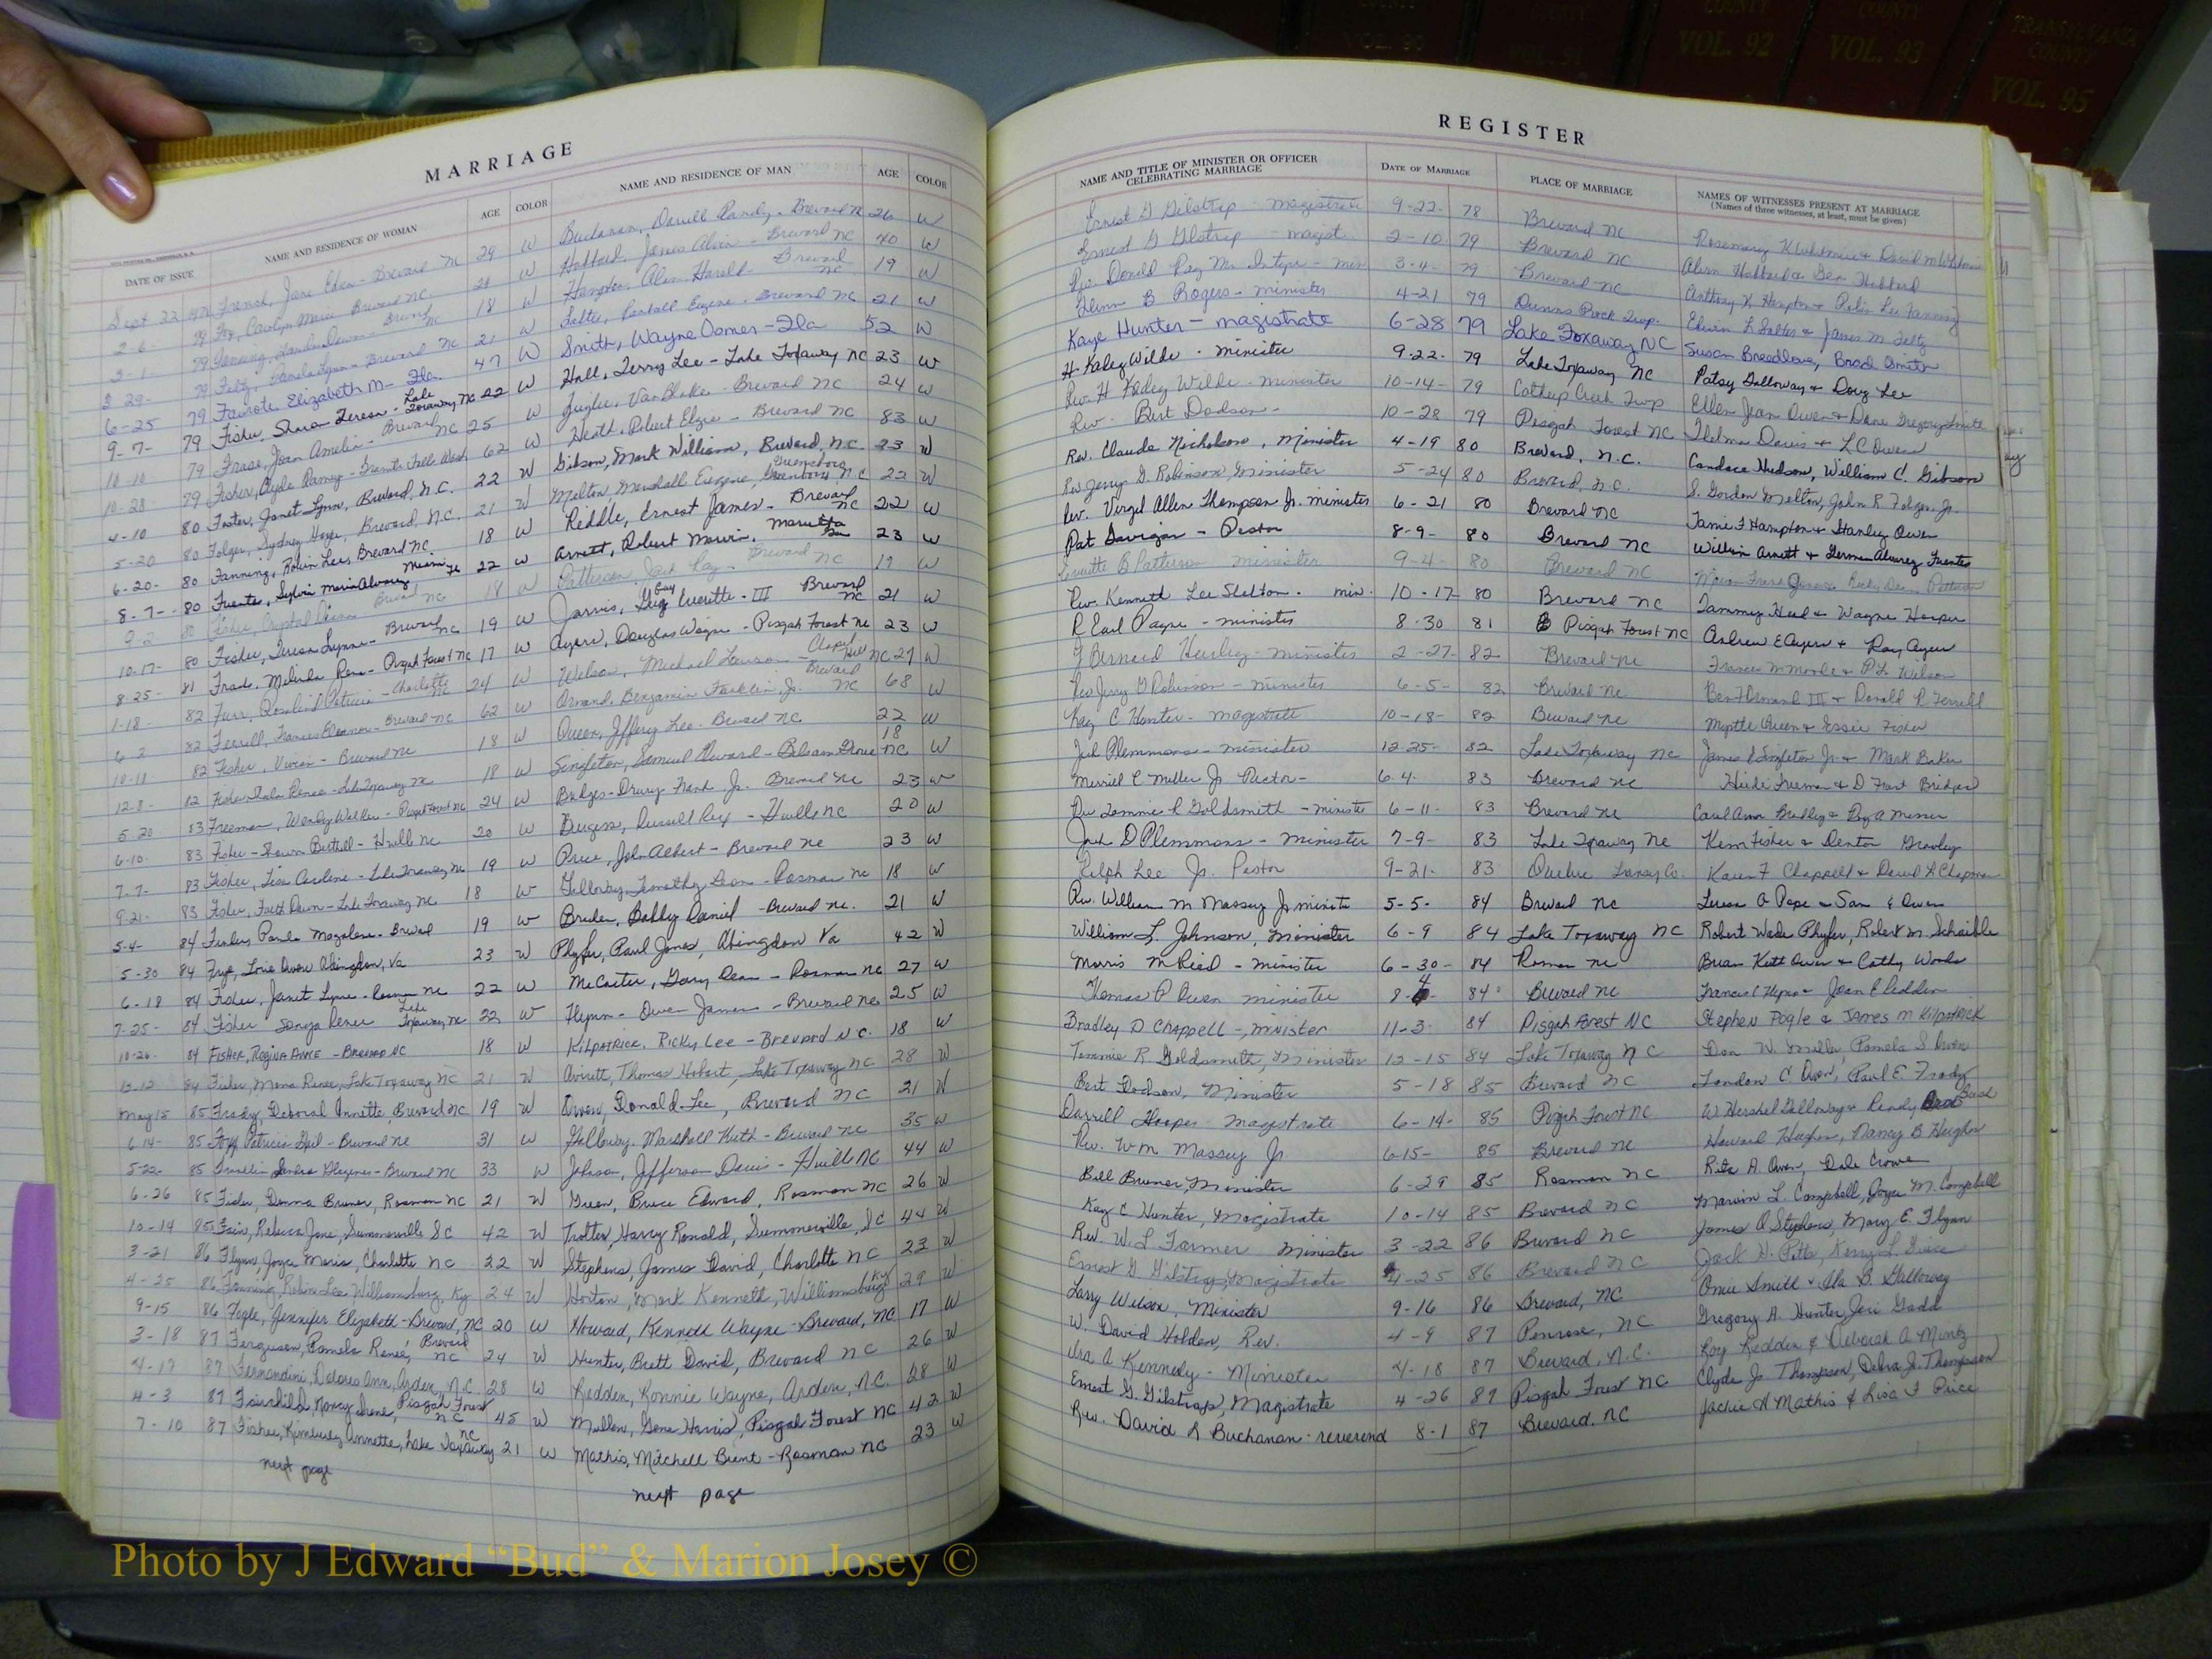 COUNTY
COUNTY
COUNTY
VOL. 92
COUNTY
VOL. 93
TRANSYLVANIA
COUNTY
VOL. 95
MARRIAGE
DATE OF ISSUE
NAME AND RESIDENCE OF WOMAN
AGE
COLOR
NAME AND RESIDENCE OF MAN
AGE
COLOR
Sept 22 1978 French, Jane - Brevard NC 29 W Buchanan, Darrell Randy - Brevard NC 26 W
2-6- 79 Fox, Carolyn Marie Brevard NC W Hubbard, James Alvin - Brevard NC 40 W
3-1- 79 Fanning, Dawn - Brevard NC 18 W Hampton, Alan Harold - Brevard NC 19 W
3-29- 79 Pamela Lynn - Brevard NC 21 W Randall Eugene, Brevard NC 21 W
6-25 79 Elizabeth M - Fla 47 W Smith, Wayne Domer - Fla 52 W
9-7- 79 Fisher, Sharon Teresa - Lake Toxaway NC 22 W Hall, Terry Lee - Lake Toxaway NC 23 W
10-10 79 Joan Amelia - Brevard NC 25 W Van Blake - Brevard NC 24 W
10-28 79 Fisher, Clyde 62 W Heath, Robert - Brevard NC 83 W
4-10 80 Foster, Janet Lynn, Brevard, N.C. 22 W Gibson, Mark William, Brevard, N.C. 23 W
5-20 80 Folger, Sydney Brevard, N.C. 21 W Melton, Marshall Eugene, Greensboro, N.C. 22 W
6-20- 80 Fanning, Robin Lee, Brevard NC. 18 W Riddle, Ernest James - Brevard NC 22 W
8-7- 80 Fuentes, Sylvia Maria Alvarez Miami Fl 22 W Arnett, Robert Marvin, Marietta 23 W
9-2 80 Fisher, Crystal Brevard NC 18 W Patterson, Jack Ray - Brevard NC 19 W
10-17- 80 Fisher, Teresa Lynne - Brevard NC 19 W Jarvis, Guy Everette - III Brevard NC 21 W
8-25- 81 Melinda Rena - Pisgah Forest NC 17 W Ayers, Douglas Wayne - Pisgah Forest NC 23 W
1-18- 82 Furr, Rosalind Patricia - Charlotte NC 24 W Wilson, Michael Lawson - Chapel Hill NC 27 W
6-2 82 Ferrell, Frances Eleanor - Brevard NC 62 W Benjamin Franklin, Jr. Brevard NC 68 W
10-18 82 Fisher, Vivian - Brevard NC 18 W Queen, Jeffery Lee - Brevard NC 22 W
12-8- 82 Fisher, Renea - Lake Toxaway NC 18 W Singleton, Samuel - Balsam Grove NC 18 W
5-20 83 Freeman, Wendy - Pisgah Forest NC 24 W Bridges - Drury Frank Jr. Brevard NC 23 W
6-10. 83 Fisher - H'ville NC 20 W Burgess, Russell Rex - H'ville NC 20 W
7-7- 83 Fisher, Lisa Caroline - Lake Toxaway NC 19 W Price, John Albert - Brevard NC 23 W
9-21- 83 Fisher, Faith Dawn - Lake Toxaway NC 18 W Galloway, Timothy Leon - Rosman NC 18 W
5-4- 84 Paula Magalene - Brevard 19 W Bobby Daniel - Brevard NC. 21 W
5-30 84 Frye, Abingdon, Va 23 W Phyfer, Paul Jones, Abingdon Va 42 W
6-18 84 Fisher, Janet Lynne - Rosman NC 22 W McCarter, Gary Dean - Rosman NC 27 W
7-25- 84 Fisher Sonya Renee Lake Toxaway NC 22 W Flynn - Owen James - Brevard NC 25 W
10-26- 84 Fisher, Regina Anne - Brevard NC 18 W Kilpatrick, Ricky Lee - Brevard N.C. 18 W
12-12 84 Fisher, Mona Renee, Lake Toxaway NC 21 W Averett, Thomas Hobart, Lake Toxaway NC 28 W
May 15 85 Frady, Deborah Annette, Brevard NC 19 W Owen, Donald Lee, Brevard NC 21 W
6-14- 85 Patricia Gail - Brevard NC 31 W Galloway, Marshall Keith - Brevard NC 35 W
5-22- 85 Franklin Sandra - Brevard NC 33 W Johnson, Jefferson Davis - H'ville NC 44 W
6-26 85 Fisher, Donna Bruner, Rosman NC 21 W Green, Bruce Edward, Rosman NC 26 W
10-14 85 Fain, Rebecca Jane, Summerville SC 42 W Trotter, Harry Ronald, Summerville, SC 44 W
3-21 86 Flynn, Joyce Maria, Charlotte NC 22 W Stephens, James David, Charlotte NC 23 W
4-25 86 Fanning, Robin Lee, Williamsburg, Ky 24 W Horton, Mark Kenneth, Williamsburg Ky 29 W
9-15 86 Fogle, Jennifer Elizabeth - Brevard, NC 20 W Howard, Kenneth Wayne - Brevard, NC 17 W
3-18 87 Ferguson, Pamela Renee, Brevard NC 24 W Hunter, Brett David, Brevard NC 26 W
4-17 87 Fernandini, Delores Ann, Arden, N.C. 28 W Redden, Ronnie Wayne, Arden, N.C. 28 W
4-3 87 Fairchild, Nancy Irene, Pisgah Forest NC 45 W Mullen, Gene Harris, Pisgah Forest NC 42 W
7-10 87 Fisher, Kimberly Annette, Lake Toxaway NC 21 W Mathis, Mitchell Brent - Rosman NC 23 W
next page
next page
REGISTER
NAME AND TITLE OF MINISTER OR OFFICER
CELEBRATING MARRIAGE
DATE OF MARRIAGE
PLACE OF MARRIAGE
NAMES OF WITNESSES PRESENT AT MARRIAGE
(Names of three witnesses, at least, must be given)
Ernest G Gilstrap magistrate 9-22- 78 Brevard NC Rosemary
Ernest G Gilstrap - magist. 2-10 79 Brevard NC Alvin Hubbard &
Rev. Donald Ray McIntyre - min 3-4- 79 Brevard NC Anthony K Hampton &
Glenn B Rogers - minister 4-21 79 Dunns Rock Twp. Edwin L & James M
Kaye Hunter - magistrate 6-28 79 Lake Toxaway NC Susan Breedlove, Brad Smith
H. Kaley Wilde - minister 9-22- 79 Lake Toxaway NC Patsy Galloway & Doug Lee
Rev H Kaley Wilde - minister 10-14- 79 Catheys Creek Twp Ellen Jean Owen &
Rev - Bert Dodson - 10-28 79 Pisgah Forest NC Thelma Davis & L C Owen
Rev. Claude Nicholson, Minister 4-19 80 Brevard, N.C. Candace Hudson, William C. Gibson
Rev Jerry G. Robinson, Minister 5-24 80 Brevard, N.C. S. Gordon Melton, John R Folger Jr.
Rev. Virgil Allen Thompson Jr. minister 6-21 80 Brevard NC Jamie F Hampton & Stanley Owen
Pat Davigan - Pastor 8-9- 80 Brevard NC William Arnett & German Alvarez Fuentes
Everette B Patterson minister 9-4- 80 Brevard NC
Rev. Kenneth Lee Shelton - min. 10-17- 80 Brevard NC Tammy & Wayne Hooper
R Earl Payne - minister 8-30 81 Pisgah Forest NC Andrew E Ayers & Ray Ayers
Bernard - minister 2-27- 82 Brevard NC Frances M & P.L. Wilson
Rev Jerry G Robinson - minister 6-5- 82 Brevard NC III & Donald R Ferrell
Kay C Hunter - magistrate 10-18- 82 Brevard NC Myrtle Queen & Essie Fisher
Jack Plemmons - minister 12-25- 82 Lake Toxaway NC James Singleton Jr. & Mark Baker
Merrill C Miller Jr Rector - 6-4- 83 Brevard NC Heidi Freeman & D Frank Bridges
Rev Tommie R Goldsmith - minister 6-11- 83 Brevard NC Carol Ann Bradley &
Jack D Plemmons - minister 7-9- 83 Lake Toxaway NC Kem Fisher & Denton
Ralph Lee Jr. Pastor 9-21- 83 Quebec Transy Co. Karen F Chappell & David L Chapman
Rev. William M Massey Jr minister 5-5- 84 Brevard NC Teresa A Pope & Sam E Owen
William L. Johnson, Minister 6-9 84 Lake Toxaway NC Robert Wade Phyfer, Robert M. Schaible
Morris M Ried - minister 6-30- 84 Rosman NC Brian Keith Owen & Cathy Woods
Thomas P Owen minister 8-4- 84 Brevard NC Francis C Flynn & Joan E Redden
Bradley D Chappell - minister 11-3- 84 Pisgah Forest NC Stephen Pogle & James M Kilpatrick
Tommie R Goldsmith, Minister 12-15 84 Lake Toxaway NC Don W. Miller, Pamela S Owen
Bert Dodson, Minister 5-18 85 Brevard NC Landon C Owen, Paul E. Frady
Darrell Hooper magistrate 6-14- 85 Pisgah Forest NC W Hershel Galloway & Randy
Rev. Wm Massey Jr. 6-15- 85 Brevard NC Howard Hughes, Nancy B Hughes
Bill Bruner, Minister 6-29 85 Rosman NC Rita A. Owen, Dale Crowe
Kay C Hunter, Magistrate 10-14 85 Brevard NC Marvin L. Campbell, Joyce M. Campbell
Rev. W. L Farmer Minister 3-22 86 Brevard NC James A Stephens, Mary E. Flynn
Ernest G. Gilstrap, Magistrate 4-25 86 Brevard NC Jack D. Pitts, Kerry L.
Larry Wilson, Minister 9-16 86 Brevard, NC Omie Smith & Ila B. Galloway
W. David Holden, Rev. 4-9 87 Penrose, NC Gregory A. Hunter, Jeri Gadd
Ira A Kennedy - Minister 4-18 87 Brevard, N.C. Roy Redden & Deborah A Mintz
Ernest G. Gilstrap, Magistrate 4-26 87 Pisgah Forest NC Clyde Jr Thompson, Debra J. Thompson
Rev. David L Buchanan - reverend 8-1 87 Brevard, NC Jackie H Mathis & Lisa F Price
Photo by J Edward “Bud” & Marion Josey ©